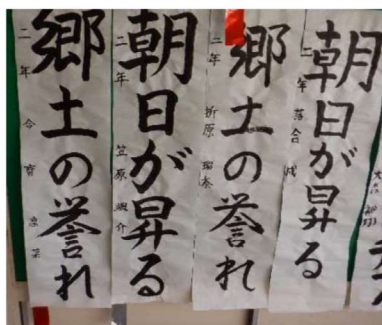 朝日が昇る
二年 落合
郷土の誉れ
二年 折原
朝日が昇る
二年 笠原 颯介
郷土の誉れ
二年 今